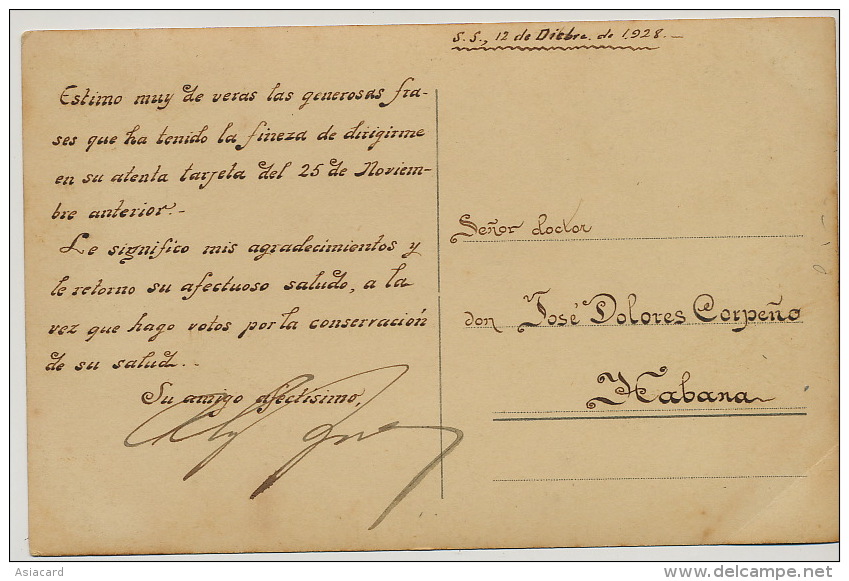 S.S., 12 de Dicbre. de 1928.-
Estimo muy de veras las generosas fra-
ses que ha tenido la fineza de dirigirme
en su atenta tarjeta del 25 de Noviem-
bre anterior.-
Le significo mis agradecimientos y
le retorno su afectuoso saludo, a la
vez que hago votos por la conservación
de su salud..
Su amigo afectísimo,
Señor doctor
don José Dolores Corpeño
Habana
Asiacard
delcampe.net